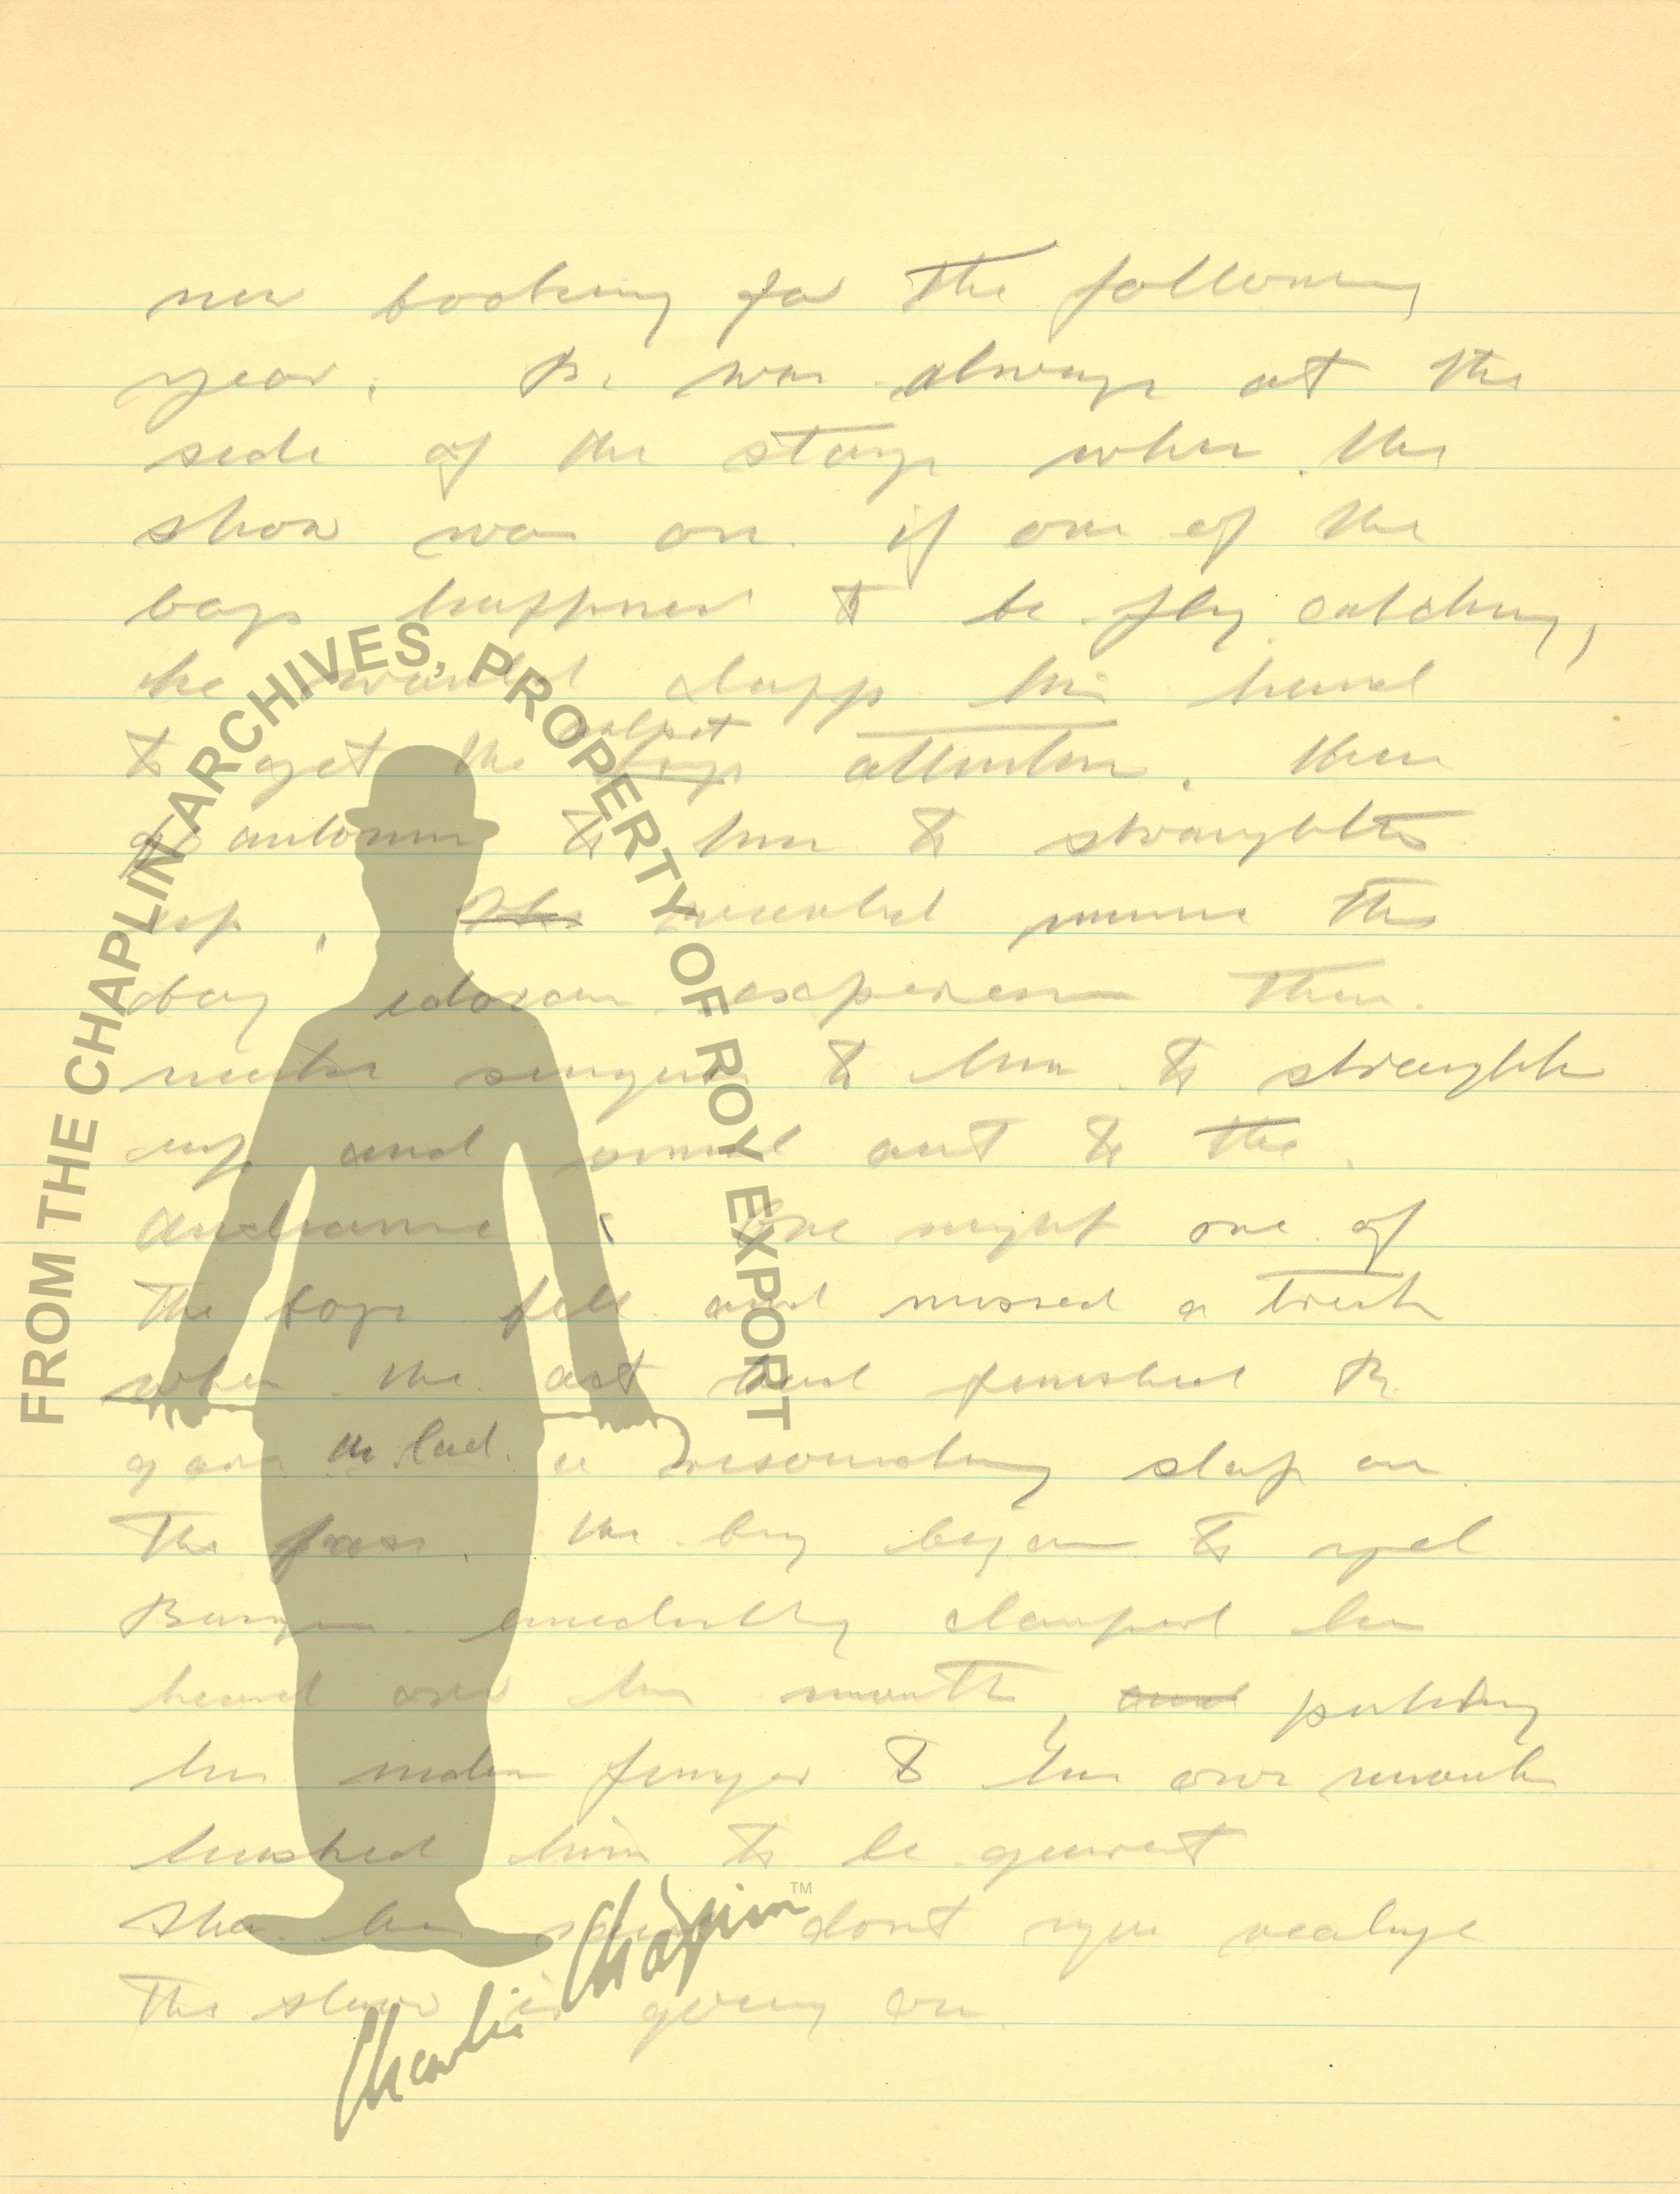 new booking for the following
year. B. was always at the
side of the stage when the
show was on. if one of the
boys happened to be fly catching,
he would clapp his hand
to get the culprit boys attention. then
to him to straighten
up, the would mime the
boy
to him to straighten
up and smile out to the
audiance. One night one of
the boys fell and missed a trick
when the act had finished B.
gave the lad. a resounding slap on
the face. the boy began to yel
clamped his
hand over his mouth, and putting
his index finger to his own mouth
hushed him to be quiet
he said dont you realize
the show is going on.
FROM THE CHAPLIN ARCHIVES, PROPERTY OF ROY EXPORT
Charlie Chaplin™